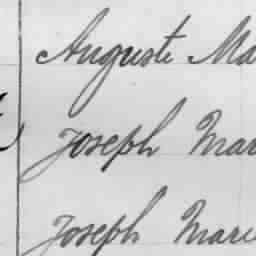 Auguste Ma
Joseph Mar
Joseph Marie